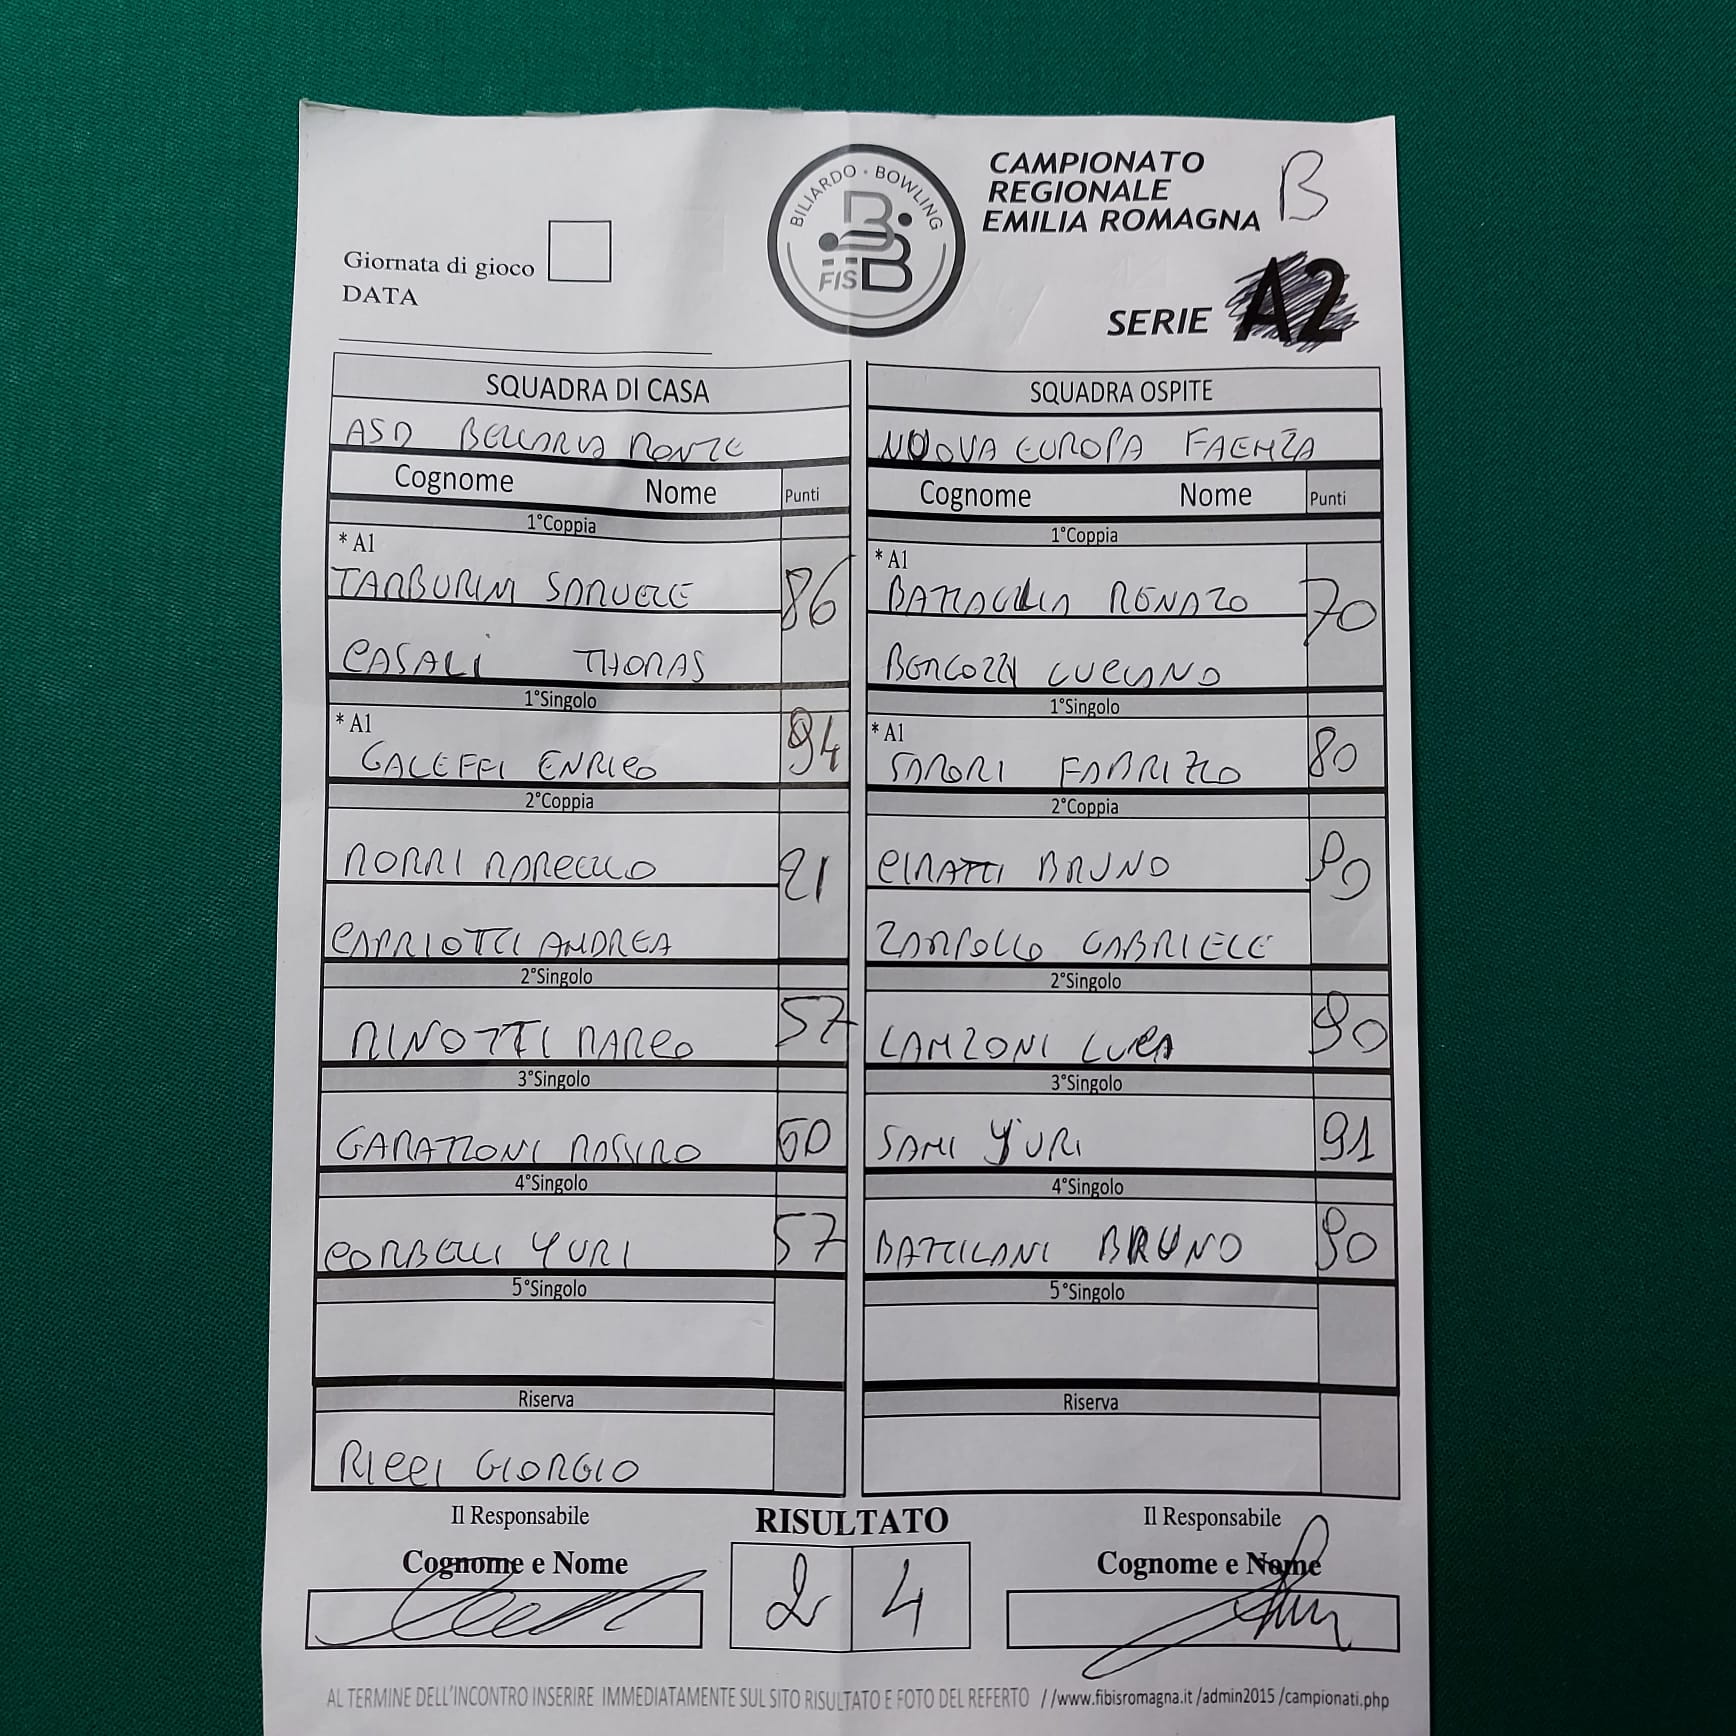 BILIARDO · BOWLING
FISBB
CAMPIONATO
REGIONALE
EMILIA ROMAGNA B
Giornata di gioco
DATA
SERIE A2
SQUADRA DI CASA SQUADRA OSPITE
ASD BELLARIA MONTE NUOVA EUROPA FAENZA
Cognome Nome Punti Cognome Nome Punti
1°Coppia 1°Coppia
* A1 * A1
TAMBURINI SAMUELE 86 BATTAGLIA RENATO 70
CASALI THOMAS LUCIANO
1°Singolo 1°Singolo
* A1 * A1
GALEFFI ENRICO 94 SAMORI FABRIZIO 80
2°Coppia 2°Coppia
MORRI MARCELLO 21 CIMATTI BRUNO 90
CAPRIOTTI ANDREA ZAMPOLLO GABRIELE
2°Singolo 2°Singolo
MINOTTI MARCO 57 LANZONI LUCA 90
3°Singolo 3°Singolo
GARATTONI MASSIMO 60 SAMI YURI 91
4°Singolo 4°Singolo
CORBELLI YURI 57 BATTILANI BRUNO 90
5°Singolo 5°Singolo
Riserva Riserva
RICCI GIORGIO
Il Responsabile RISULTATO Il Responsabile
Cognome e Nome 2 4 Cognome e Nome
AL TERMINE DELL'INCONTRO INSERIRE IMMEDIATAMENTE SUL SITO RISULTATO E FOTO DEL REFERTO //www.fibisromagna.it /admin2015 /campionati.php